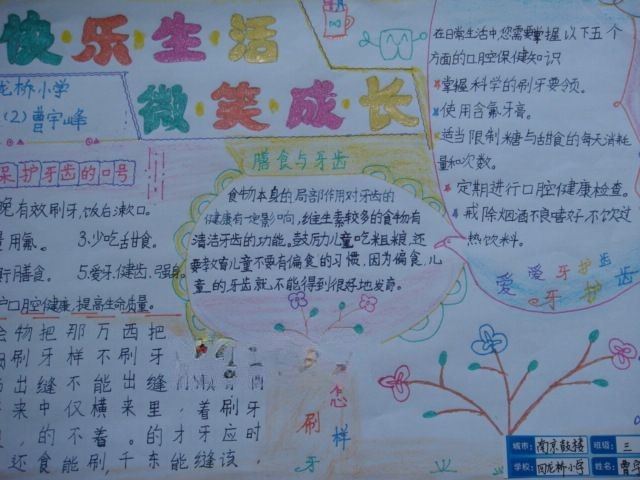 快乐生活
微笑成长
龙桥小学
(2)曹宇峰
保护牙齿的口号
晚有效刷牙,饭后漱口。
用氟。 3.少吃甜食。
膳食。 5.爱牙、健齿、强身。
护口腔健康,提高生命质量。
膳食与牙齿
食物本身的局部作用对牙齿的
健康有一定影响,维生素较多的食物有
清洁牙齿的功能。鼓励儿童吃粗粮,还
要教育儿童不要有偏食的习惯,因为偏食,儿
童的牙齿就不能得到很好地发育。
在日常生活中,您需要掌握以下五个
方面的口腔保健知识
掌握科学的刷牙要领。
使用含氟牙膏。
适当限制糖与甜食的每天消耗
量和次数。
定期进行口腔健康检查。
戒除烟酒不良嗜好不饮过
热饮料。
爱牙护齿
爱牙护齿
怎样
刷牙
牙时,
刷应该
着牙缝
,才能
把牙缝里的东
西刷出来。千
万不能横着刷,
那样不仅不能
把牙缝中的食
物刷出来,还
会
城市: 南京鼓楼 班级: 三
学校: 回龙桥小学 姓名: 曹宇